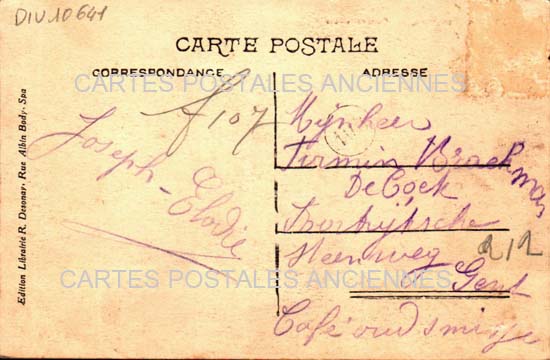 DIV10641
CARTE POSTALE
CORRESPONDANCE
ADRESSE
CARTES POSTALES ANCIENNES
f 107
Joseph - Elodie
Mijnheer
Firmin Brackman
De Cock
Kortrijksche
Steenweg 212
Gent
Café oud smisje
CARTES POSTALES ANCIENNES
Edition Librairie R. Desonar. Rue Albin Body. Spa